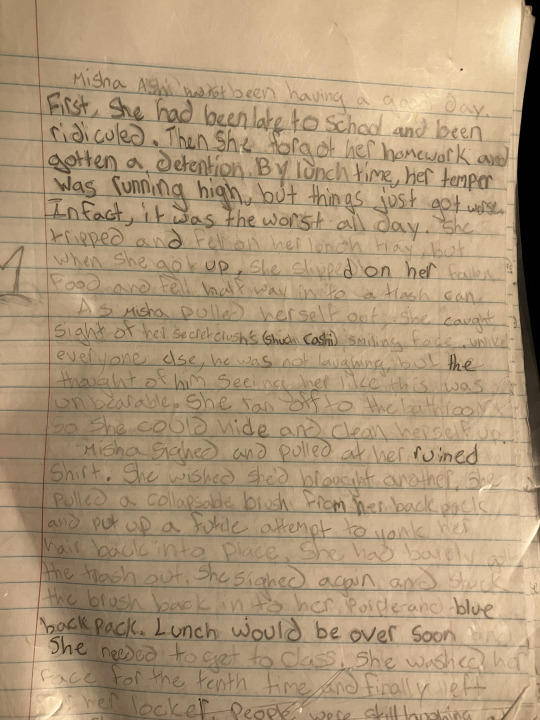 Misha Ashi wasnt been having a good day.
First, she had been late to school and been
ridiculed. Then she forgot her homework and
gotten a detention. By lunch time, her temper
was running high, but things just got worse.
Infact, it was the worst all day. She
tripped and fell on her lunch tray, but
when she got up, she slipped on her fallen
food and fell half way in to a trash can.
As Misha pulled herself out, she caught
sight of her secret crush's (Shuan Cashi) smiling face, unlike
everyone else, he was not laughing, but the
thought of him seeing her like this was
unbearable. She ran off to the bathroom
so she could hide and clean herself up.
Misha sighed and pulled at her ruined
shirt. She wished she'd brought another. She
pulled a collapsable brush from her backpack
and put up a futile attempt to yank her
hair back into place. She had barely got
the trash out. She sighed again and stuck
the brush back in to her purple and blue
backpack. Lunch would be over soon
She needed to get to class. She washed her
face for the tenth time and finally left
her locker. People were still laughing